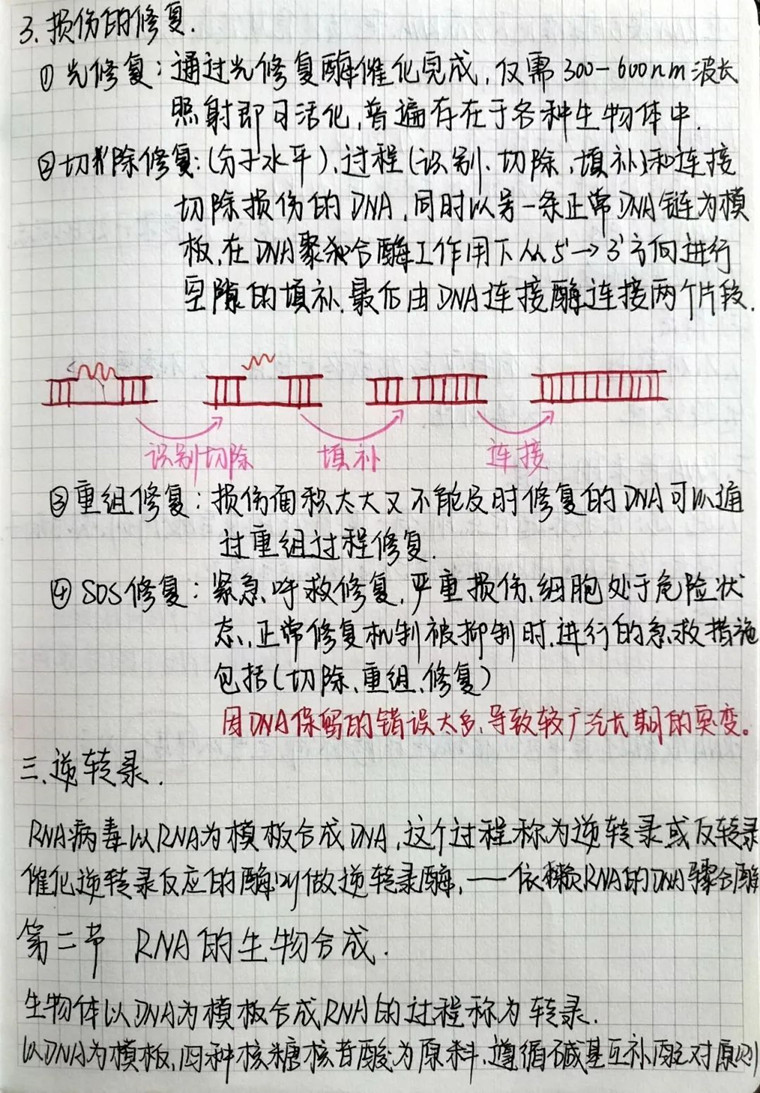 3. 损伤的修复.
① 光修复：通过光修复酶催化完成，仅需300-600nm波长
照射即可活化，普遍存在于各种生物体中.
②切除修复：(分子水平)，过程(识别、切除、填补)和连接
切除损伤的DNA，同时以另一条正常DNA链为模
板，在DNA聚合酶工作用下从5'→3'方向进行
空隙的填补.最后由DNA连接酶连接两个片段.
识别切除 填补 连接
③重组修复：损伤面积太大又不能及时修复的DNA可以通
过重组过程修复.
④ SOS修复：紧急呼救修复，严重损伤、细胞处于危险状
态，正常修复机制被抑制时.进行的急救措施
包括(切除、重组、修复)
因DNA保留的错误太多，导致较广泛长期的突变。
三.逆转录.
RNA病毒以RNA为模板合成DNA，这个过程称为逆转录或反转录
催化逆转录反应的酶叫做逆转录酶，——依赖RNA的DNA聚合酶
第二节 RNA的生物合成.
生物体以DNA为模板合成RNA的过程称为转录.
以DNA为模板，四种核糖核苷酸为原料.遵循碱基互补配对原则